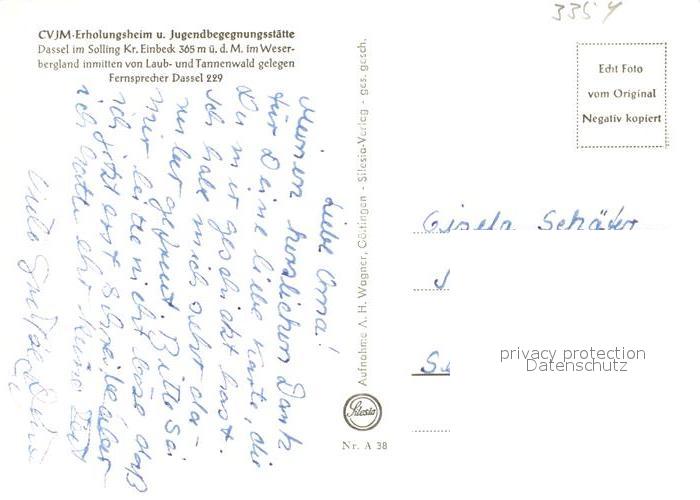 3354
CVJM-Erholungsheim u. Jugendbegegnungsstätte
Dassel im Solling Kr. Einbeck 365 m ü. d. M. im Weser-
bergland inmitten von Laub- und Tannenwald gelegen
Fernsprecher Dassel 229
Echt Foto
vom Original
Negativ kopiert
Liebe Oma!
Meinen herzlichen Dank
für Deine liebe Karte, die
Du mir geschickt hast.
Ich habe mich sehr da-
gefreut. Bitte sei
mir bitte nicht böse daß
ich jetzt erst schreibe, aber
ich hatte eher keine Zeit
Viele Grüße Deine
Aufnahme A. H. Wagner, Göttingen - Silesia-Verlag - ges. gesch.
Silesia
Nr. A 38
Gisela Schäfer
privacy protection
Datenschutz